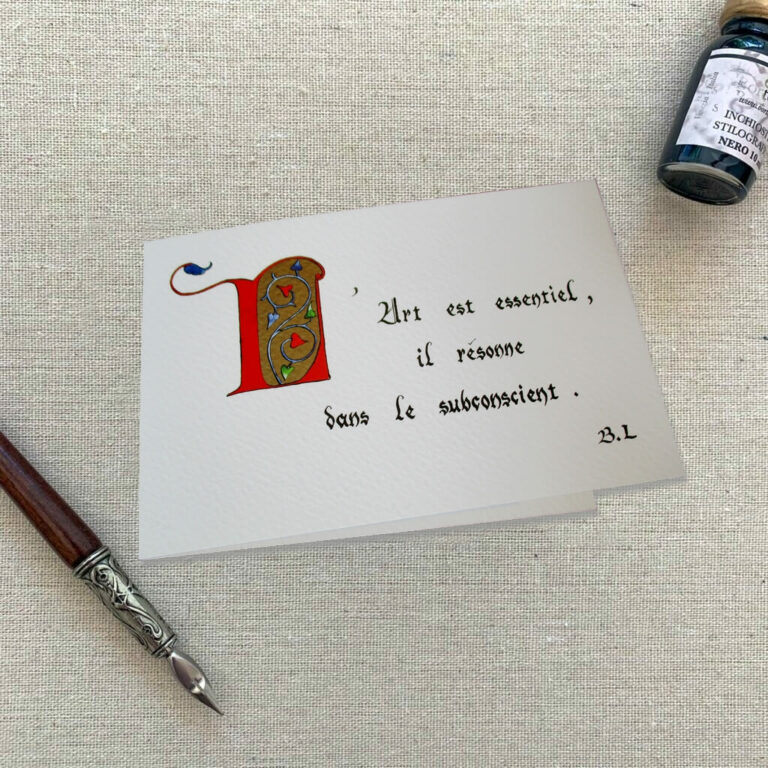 L'Art est essentiel,
il résonne
dans le subconscient.
B.L
INCHIOST
STILOGRA
NERO 10 m